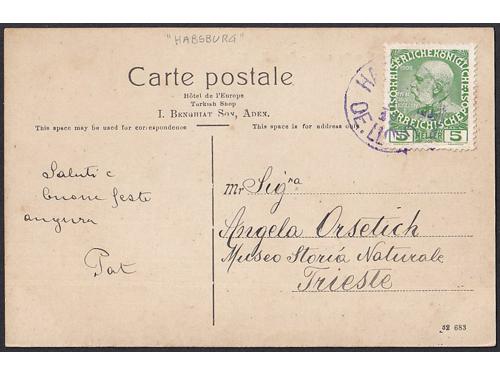 "HABSBURG"
Carte postale
Hôtel de l'Europe
Turkish Shop
I. Benghiat Son, Aden.
This space may be used for correspondence
This space is for address only
5 HELLER 5
OE. LL
Saluti e
buone feste
augura
Pat
mr Sigra
Angela Orsetich
Museo Storia Naturale
Trieste
52 683